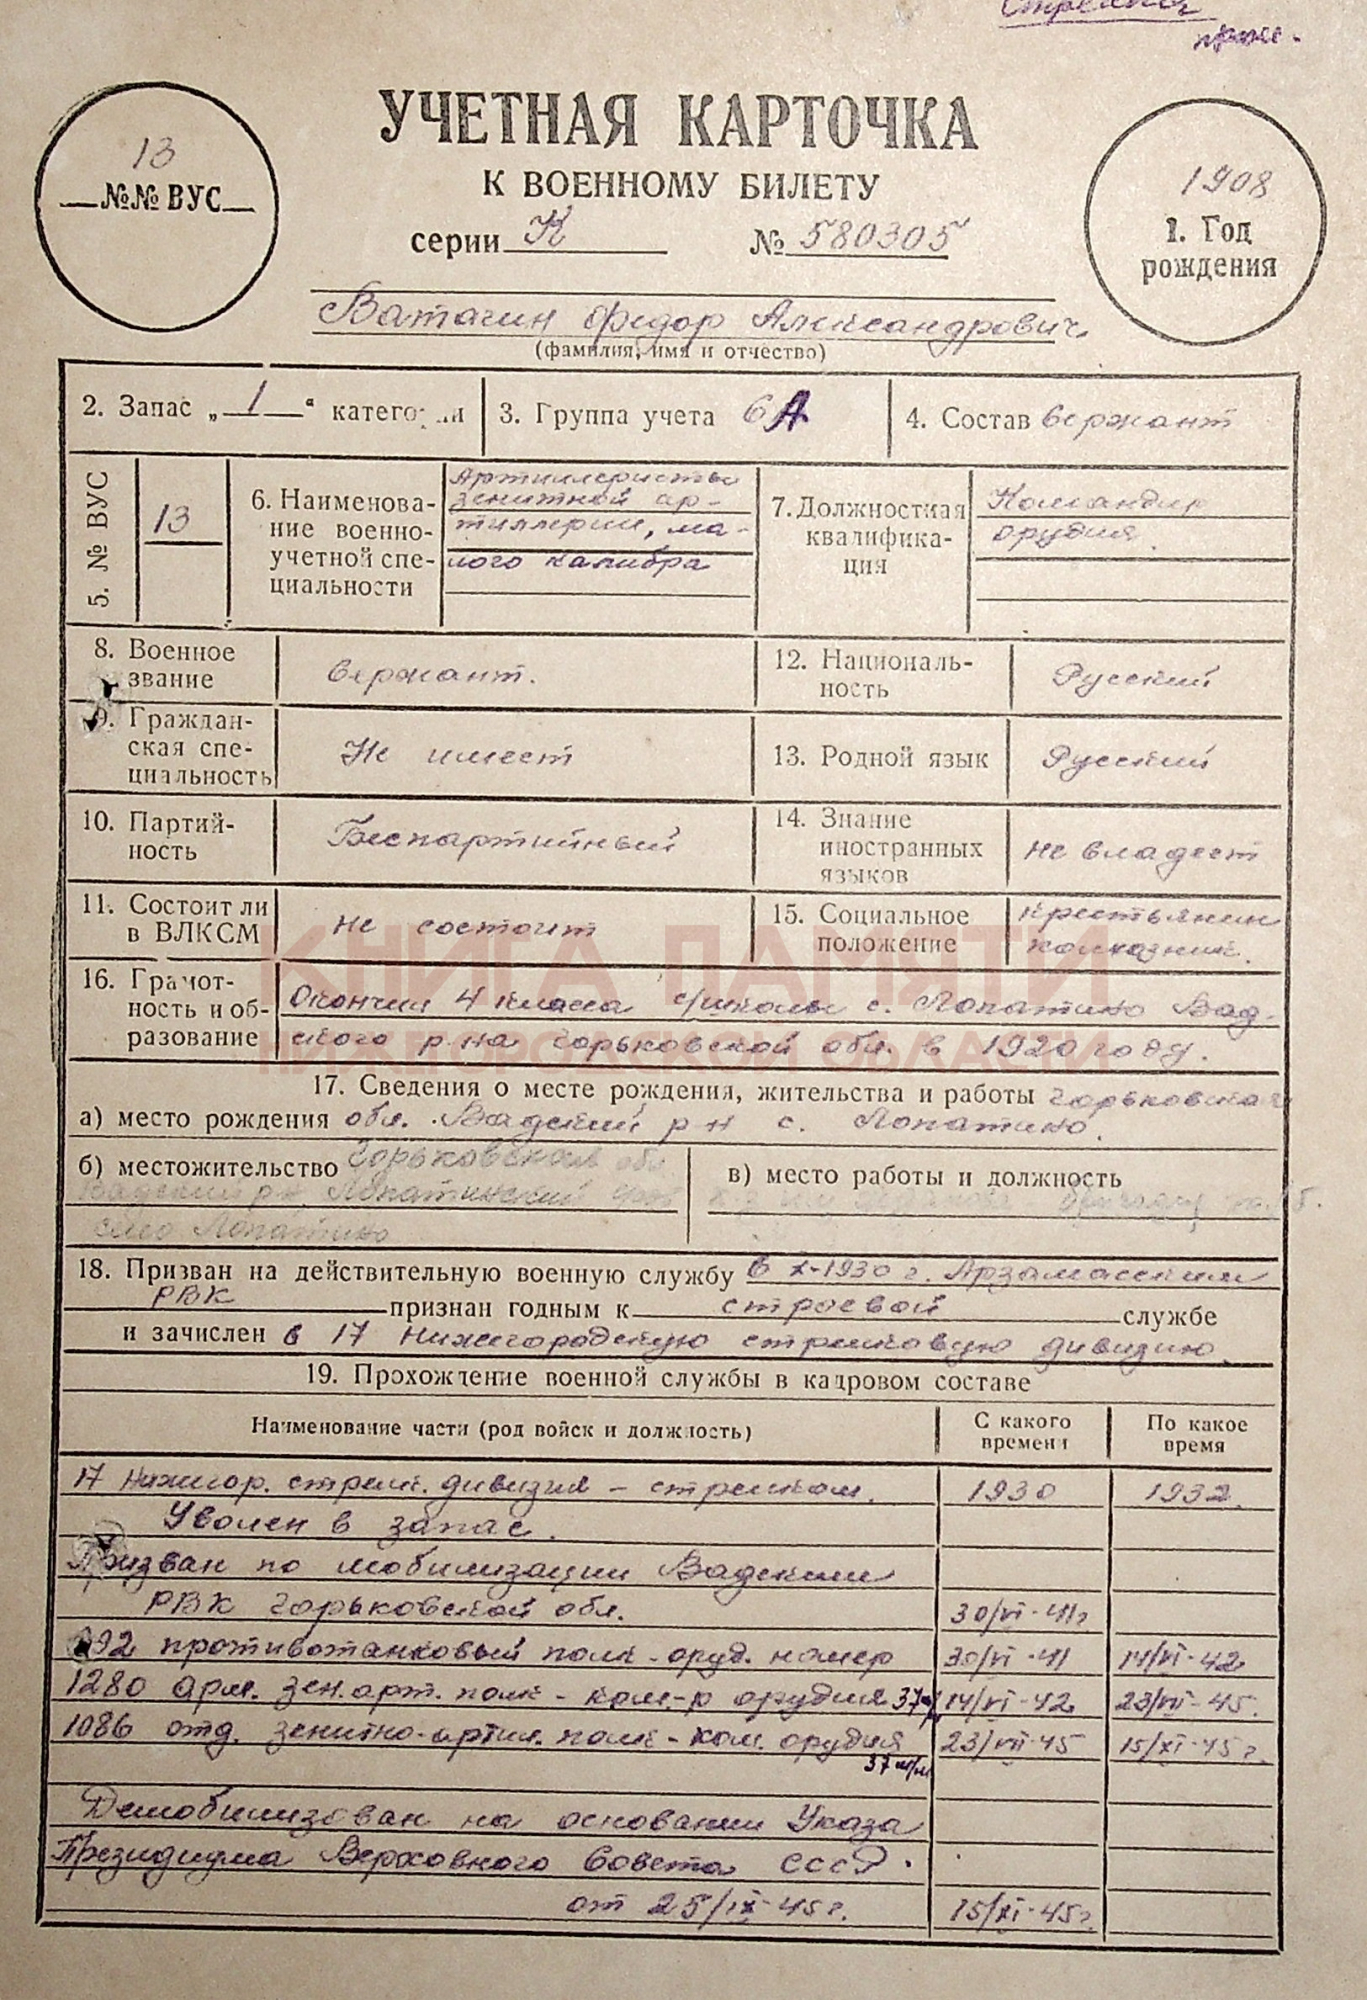 УЧЕТНАЯ КАРТОЧКА
К ВОЕННОМУ БИЛЕТУ
13
№№ ВУС
серии К № 580305
1908
1. Год
рождения
Ватагин Федор Александрович
(фамилия, имя и отчество)
2. Запас „1“ категории
3. Группа учета 6А
4. Состав Сержант
5. № ВУС
13
6. Наименова-
ние военно-
учетной спе-
циальности
Артиллеристы
зенитной ар-
тиллерии, ма-
лого калибра
7. Должностная
квалифика-
ция
Командир
орудия.
8. Военное
звание
Сержант.
9. Граждан-
ская спе-
циальность
Не имеет
10. Партий-
ность
Беспартийный
11. Состоит ли
в ВЛКСМ
Не состоит
12. Националь-
ность
Русский
13. Родной язык
Русский
14. Знание
иностранных
языков
не владеет
15. Социальное
положение
крестьянин
колхозник.
16. Грамот-
ность и об-
разование
Окончил 4 класса с/школы с. Лопатино Вад-
ского р-на Горьковской обл. в 1920 году.
КНИГА ПАМЯТИ
НИЖЕГОРОДСКОЙ ОБЛАСТИ
17. Сведения о месте рождения, жительства и работы Горьковская
а) место рождения обл. Вадский р-н с. Лопатино.
б) местожительство Горьковская обл
Вадский р-н Лопатинский
село Лопатино
в) место работы и должность
18. Призван на действительную военную службу в X-1930 г. Арзамасским
РВК признан годным к строевой службе
и зачислен в 17 Нижегородскую стрелковую дивизию.
19. Прохождение военной службы в кадровом составе
Наименование части (род войск и должность)
С какого
времени
По какое
время
17 Нижгор. стрелк. дивизия – стрелком. 1930 1932.
Уволен в запас.
Призван по мобилизации Вадским
РВК Горьковской обл. 30/VI-41г
92 противотанковый полк - оруд. номер 30/VI-41 14/VI-42
1280 арм. зен. арт. полк - ком-р орудия 37м/м 14/VI-42 23/VII-45.
1086 отд. зенитно-артил. полк - ком. орудия 23/VII-45 15/XI-45г.
37 м/м
Демобилизован на основании Указа
Президиума Верховного Совета СССР.
от 25/IX-45г. 15/XI-45г